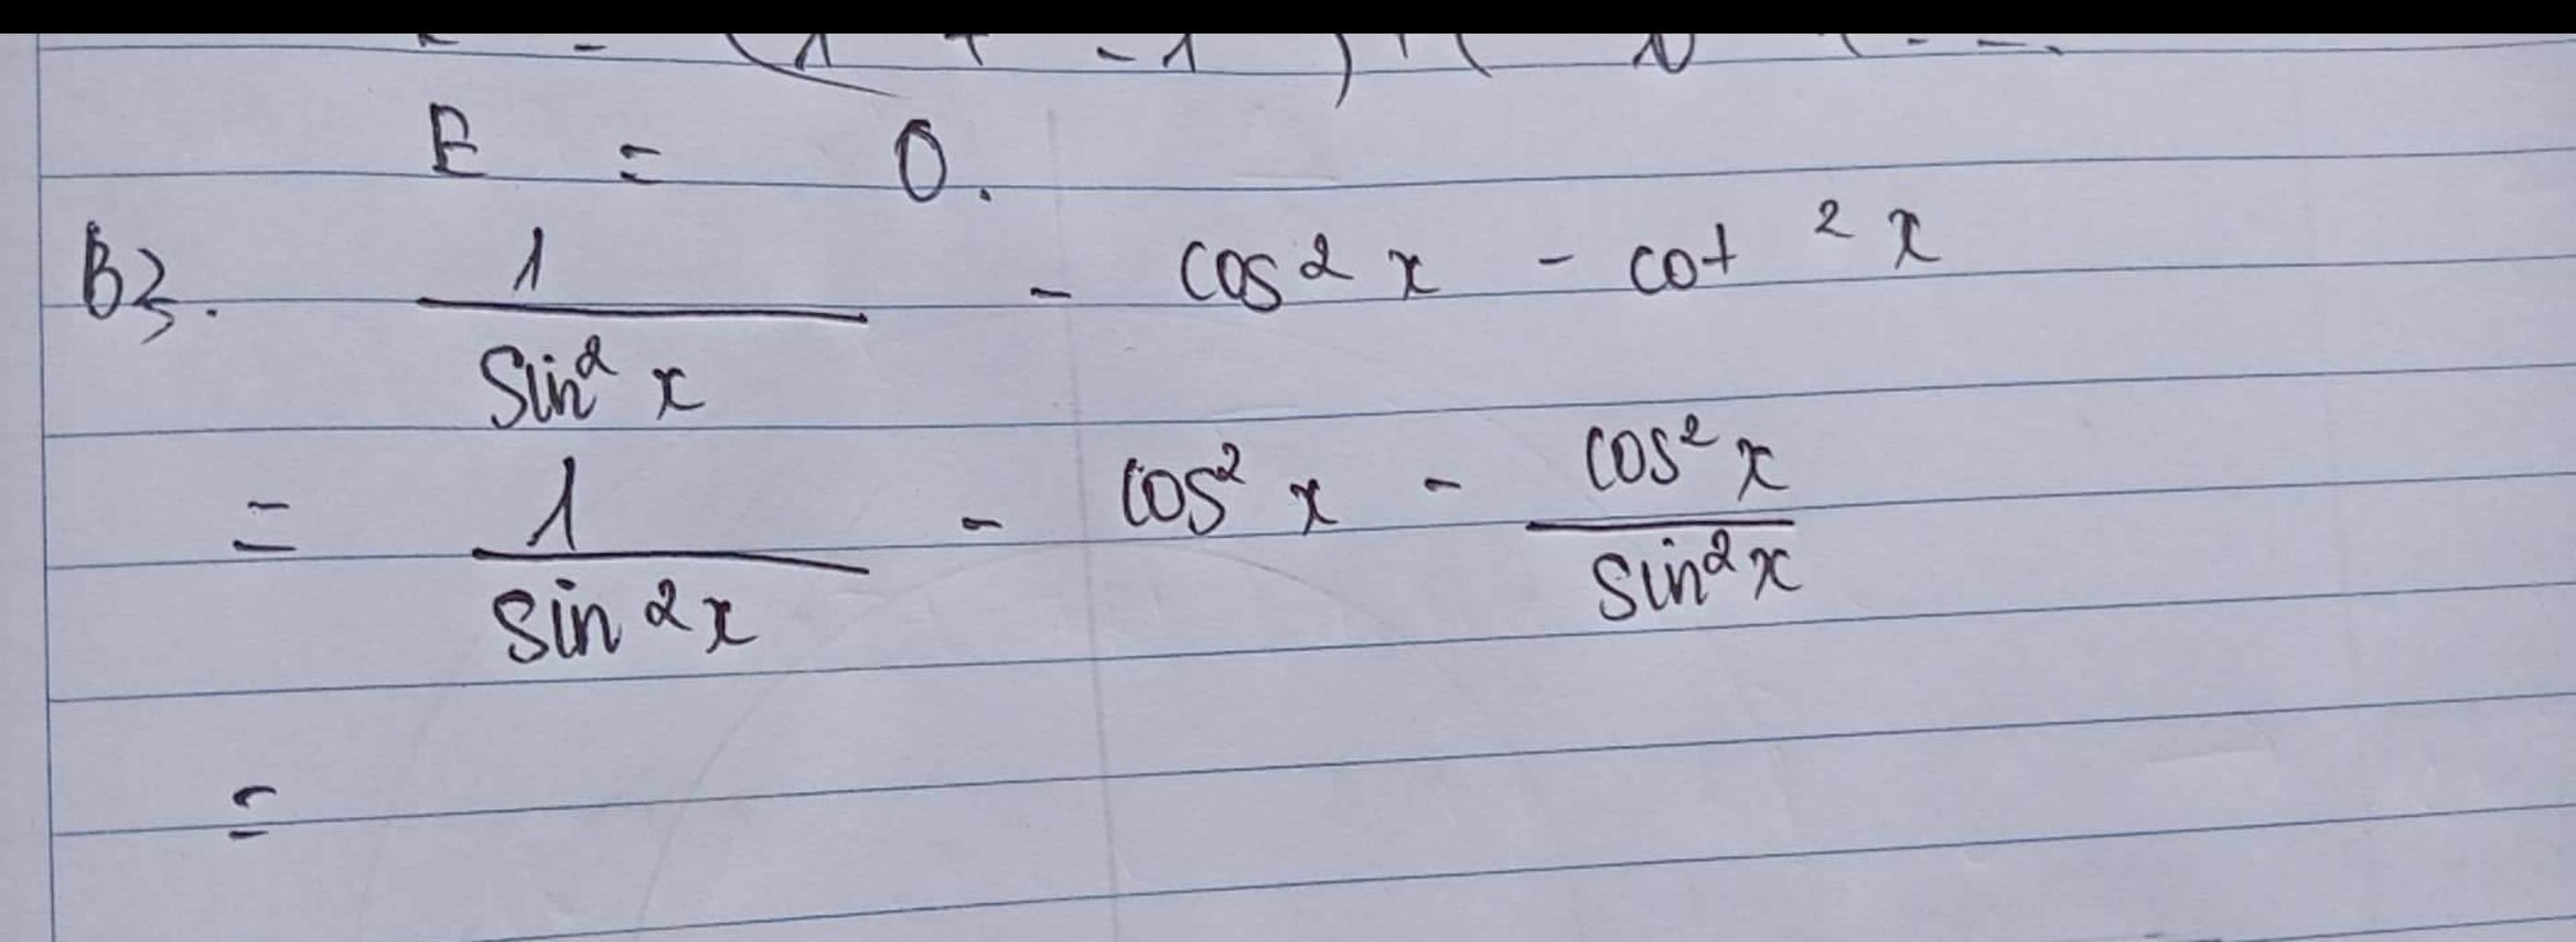 E = 0.
B3. 1 / sin² x - cos² x - cot ² x
= 1 / sin ² x - cos² x - cos² x / sin² x
=